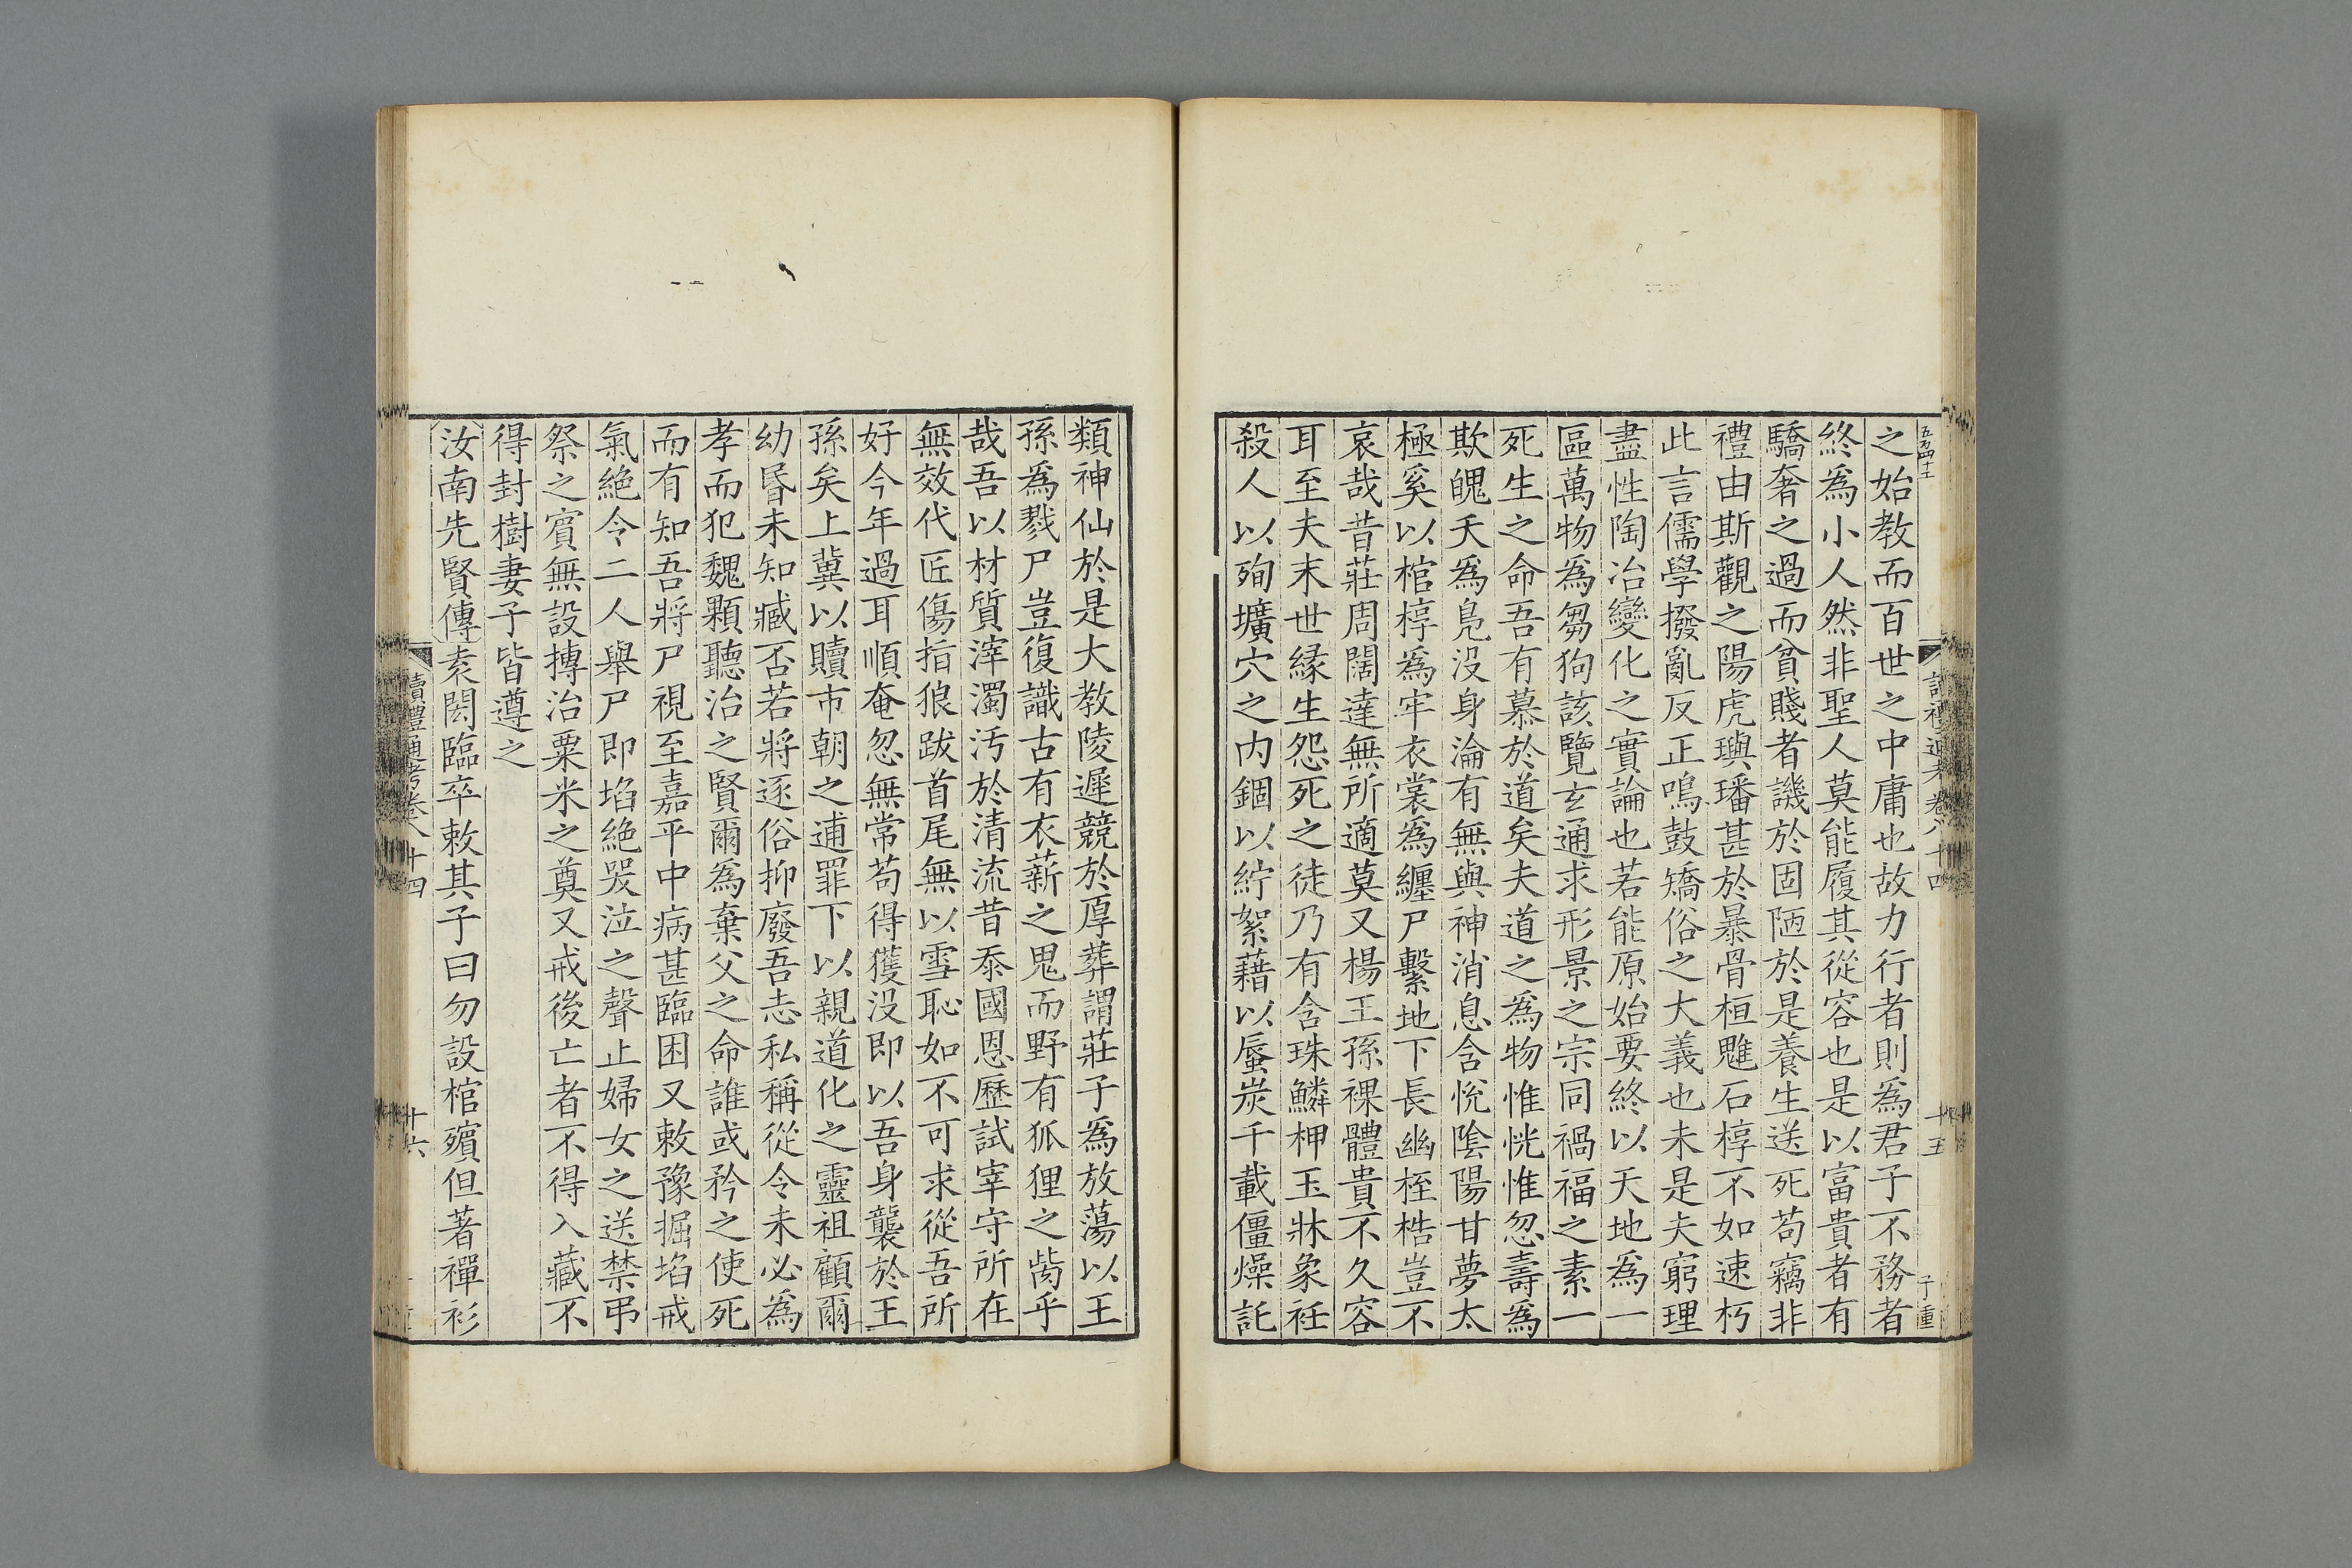 之始教而百世之中庸也故力行者則爲君子不務者
終爲小人然非聖人莫能履其從容也是以富貴者有
驕奢之過而貧賤者譏於固陋於是養生送死苟竊非
禮由斯觀之陽虎璵璠甚於暴骨桓魋石椁不如速朽
此言儒學撥亂反正鳴鼓矯俗之大義也未是夫窮理
盡性陶冶變化之實論也若能原始要終以天地爲一
區萬物爲芻狗該覽玄通求形景之宗同禍福之素一
死生之命吾有慕於道矣夫道之爲物惟恍惟忽壽爲
欺魄夭爲凫没身淪有無與神消息含悅陰陽甘夢太
極奚以棺椁爲牢衣裳爲纏尸繫地下長幽桎梏豈不
哀哉昔莊周闊達無所適莫又楊王孫裸體貴不久容
耳至夫末世緣生怨死之徒乃有含珠鱗柙玉牀象衽
殺人以殉壙穴之内錮以紵絮藉以蜃炭千載僵燥託
類神仙於是大教陵遲競於厚葬謂莊子爲放蕩以王
孫爲戮尸豈復識古有衣薪之鬼而野有狐狸之胔乎
哉吾以材質滓濁汚於清流昔忝國恩歷試宰守所在
無效代匠傷指狼跋首尾無以雪恥如不可求從吾所
好今年過耳順奄忽無常苟得獲没即以吾身襲於王
孫矣上冀以贖市朝之逋罪下以親道化之靈祖顧爾
幼昬未知臧否若將逐俗抑廢吾志私稱從令未必爲
孝而犯魏顆聽治之賢爾爲棄父之命誰或矜之使死
而有知吾將尸視至嘉平中病甚臨困又敕豫掘埳戒
氣絶令二人舉尸即埳絶哭泣之聲止婦女之送禁弔
祭之賓無設摶治粟米之奠又戒後亡者不得入藏不
得封樹妻子皆遵之
汝南先賢傳袁閎臨卒敕其子曰勿設棺殯但著襌衫
讀禮通考卷八十四
十五
子重
讀禮通考卷八十四
十六